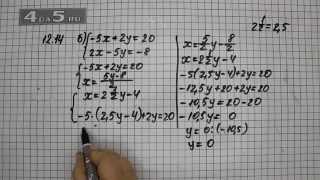 4@5.ru
12.14 б) { -5x + 2y = 20
2x - 5y = -8
{ -5x + 2y = 20
x = (5y - 8)/2
{ x = 2 1/2 y - 4
-5·(2,5y - 4) + 2y = 20
x = 5/2 y - 8/2
x = 2 1/2 y - 4
-5(2,5y - 4) + 2y = 20
-12,5y + 20 + 2y = 20
-10,5y = 20 - 20
-10,5y = 0
y = 0 : (-10,5)
y = 0
2 1/2 = 2,5